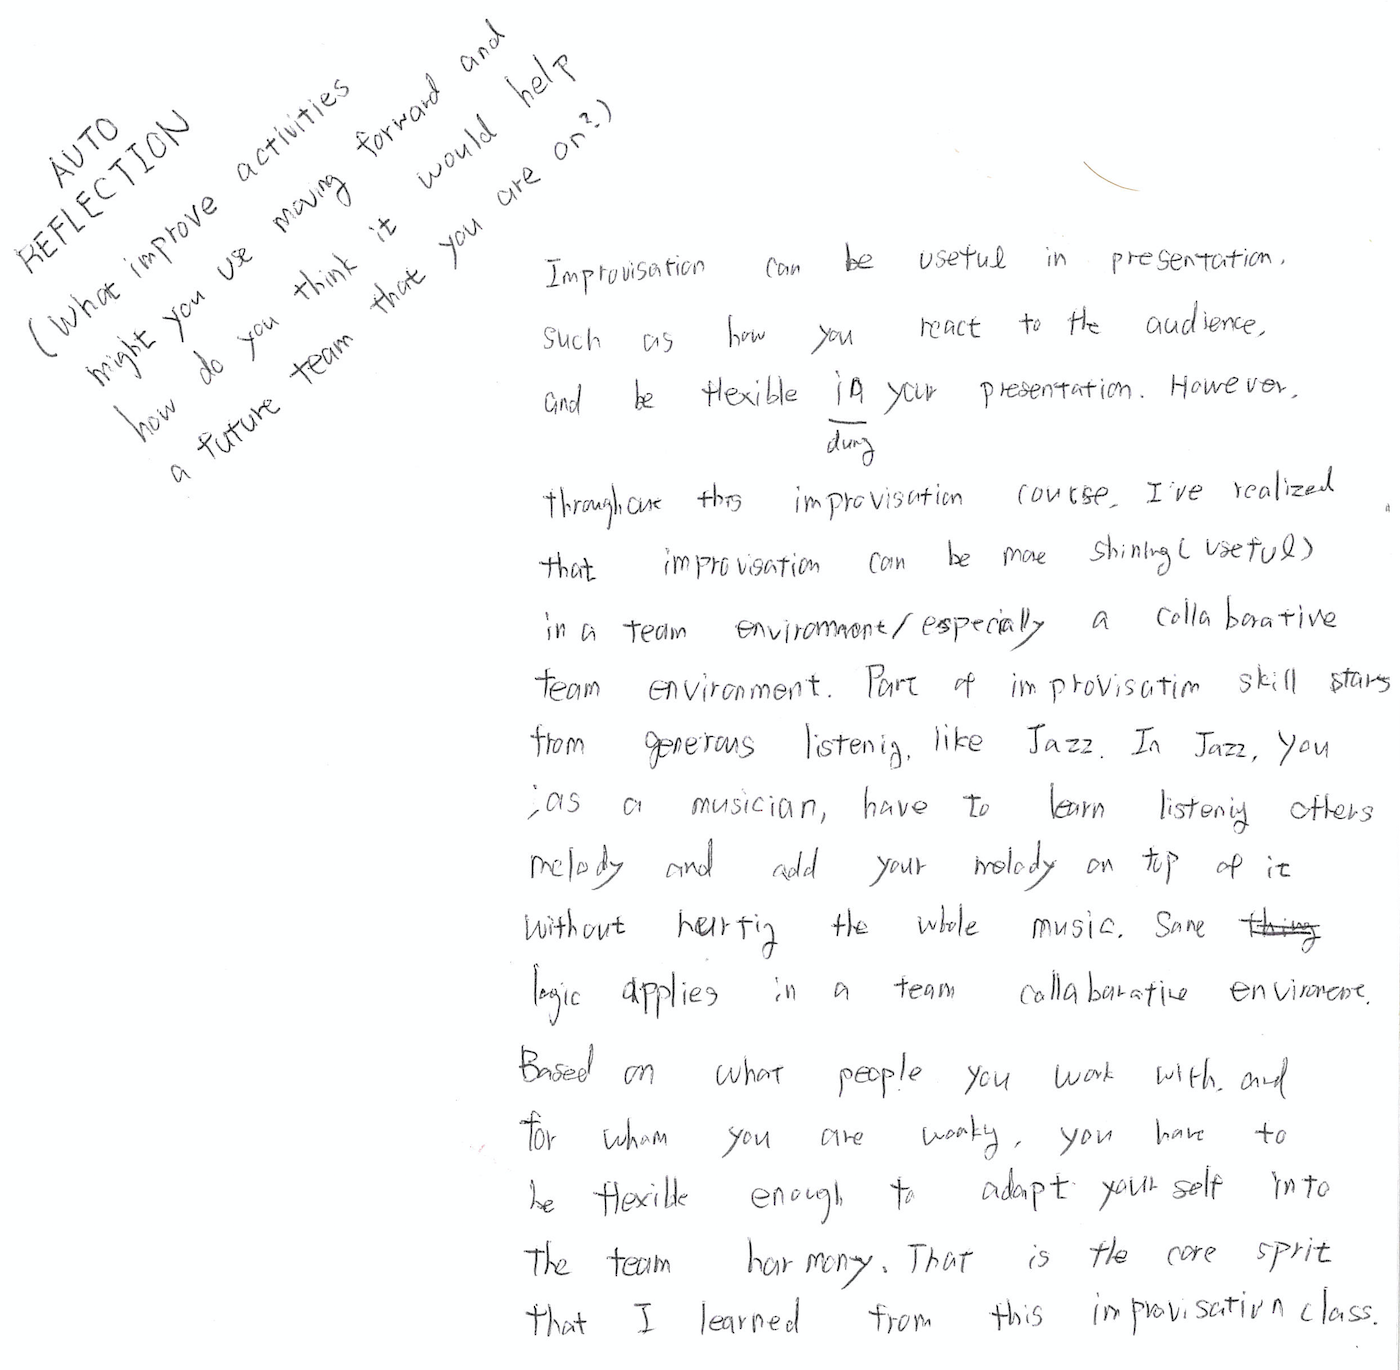 AUTO
REFLECTION
(What improve activities
might you use moving forward and
how do you think it would help
a future team that you are on?)
Improvisation can be useful in presentation.
such as how you react to the audience,
and be flexible in your presentation. However,
during
throughout this improvisation course, I've realized
that improvisation can be more shining (useful)
in a team environment/especially a collaborative
team environment. Part of improvisation skill stars
from generous listenig, like Jazz. In Jazz, you
,as a musician, have to learn listenig others
melody and add your melody on top of it
without hurtig the whole music. Same thing
logic applies in a team collabarative enviroment.
Based on what people you work with, and
for wham you are workig, you have to
be flexible enough to adapt yourself into
the team harmony. That is the core sprit
that I learned from this improvisation class.